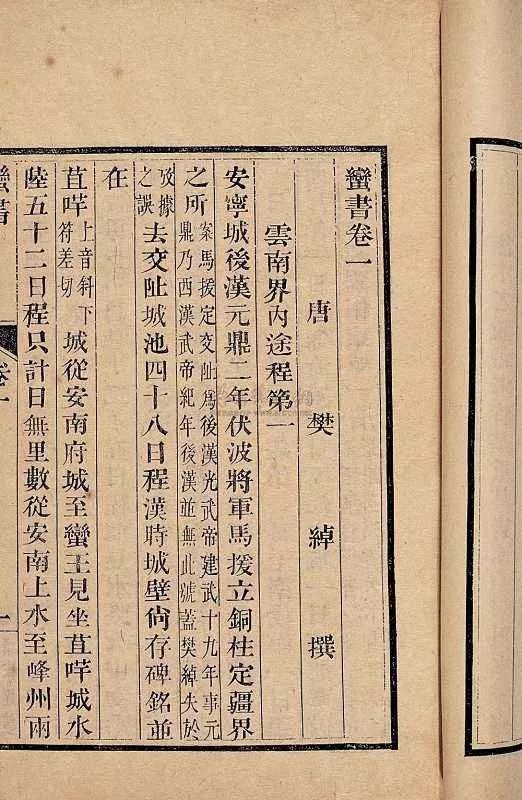 蠻書卷一
唐 樊 綽 撰
雲南界內途程第一
安寧城後漢元鼎二年伏波將軍馬援立銅柱定疆界
之所案馬援定交阯爲後漢光武帝建武十九年事元
鼎乃西漢武帝紀年後漢並無此號蓋樊綽失於
攷據
之誤去交阯城池四十八日程漢時城壁尙存碑銘並
在
苴咩上音斜下
符差切城從安南府城至蠻王見坐苴咩城水
陸五十二日程只計日無里數從安南上水至峰州兩
蠻書 卷一 一